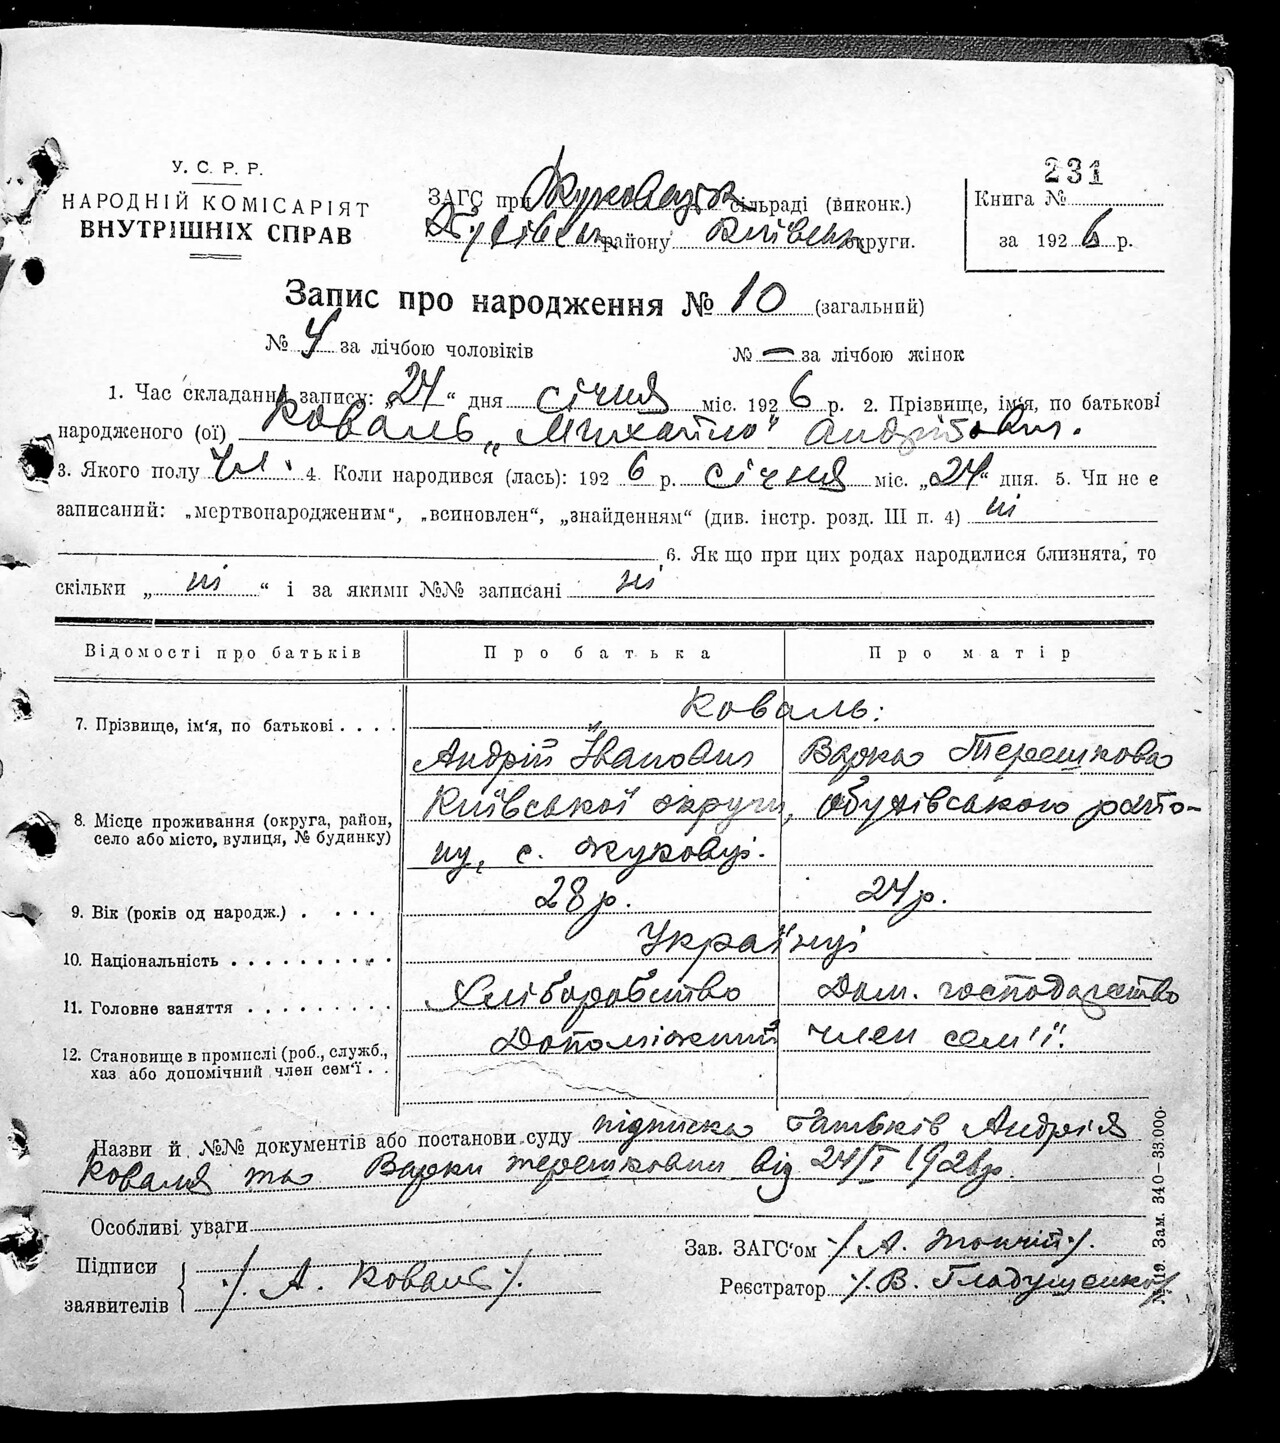 231
У. С. Р. Р.
НАРОДНІЙ КОМІСАРІЯТ
ВНУТРІШНІХ СПРАВ
ЗАГС при сільраді (виконк.)
району Київськ округи.
Книга №
за 1926 р.
Запис про народження № 10 (загальний)
№ 4 за лічбою чоловіків № — за лічбою жінок
1. Час складання запису: „24“ дня січня міс. 1926 р. 2. Прізвище, ім'я, по батькові
народженого (ої) Коваль „Михайло“ Андрійович.
3. Якого полу чл. 4. Коли народився (лась): 1926 р. січня міс. „24“ дня. 5. Чи не є
записаний: „мертвонародженим“, „всиновлен“, „знайденням“ (див. інстр. розд. III п. 4) ні
6. Як що при цих родах народилися близнята, то
скільки „ ні “ і за якими №№ записані ні
Відомості про батьків Про батька Про матір
Коваль:
7. Прізвище, ім'я, по батькові . . . .
Андрій Іванович Варка Терешкова
Київської округи, Обухівського райо-
8. Місце проживання (округа, район,
село або місто, вулиця, № будинку)
ну, с. Жуковці.
28 р. 24 р.
9. Вік (років од народж.) . . . . .
Українці
10. Національність . . . . . . . . . .
Хліборобство Дом. господарство
11. Головне заняття . . . . . . . . .
Допоміжний член сем'ї.
12. Становище в промислі (роб., служб.,
хаз або допомічний член сем'ї . .
Назви й №№ документів або постанови суду підписка батьків Андрія
Коваля та Варки Терешкови від 24/I 1926р.
Особливі уваги
Підписи
заявителів /. А. Коваль /.
Зав. ЗАГС'ом /. А.
Реєстратор /. В. Гладущенко /.
№ 119. Зам. 340—33.000.